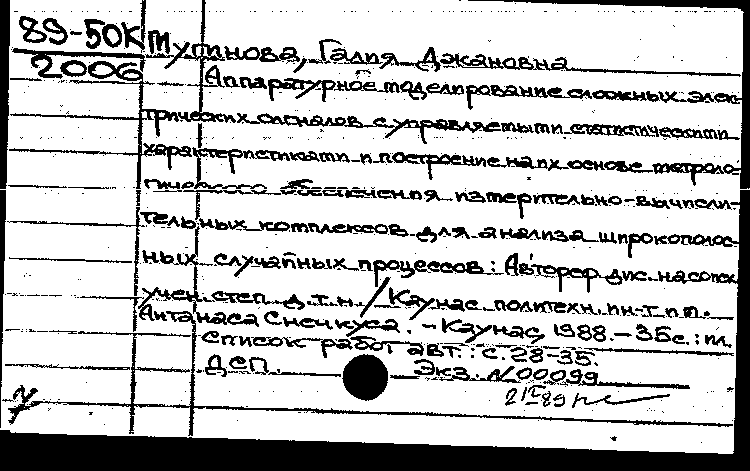 89-50К
2006
Тупинова, Галия Джановна
Аппаратурное моделирование сложных элек-
трических сигналов с управляемыми статистическими
характеристиками и построение на их основе метроло-
гического обеспечения измерительно-вычисли-
тельных комплексов для анализа широкополос-
ных случайных процессов: Автореф. дис. на соиск.
учен. степ. д.т.н. / Каунас. политехн. ин-т им.
Антанаса Снечкуса. - Каунас, 1988. - 35с.: ил.
Список работ авт.: с. 28-35.
ДСП. Экз. №00099